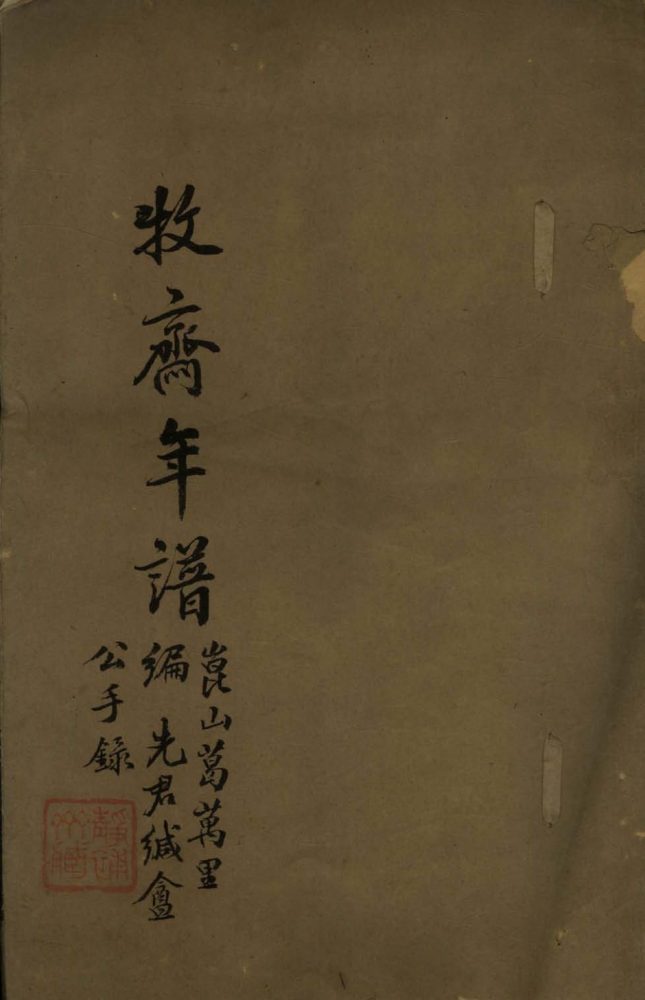 牧齋年譜
崑山葛萬里
編 先君緘盦
公手錄